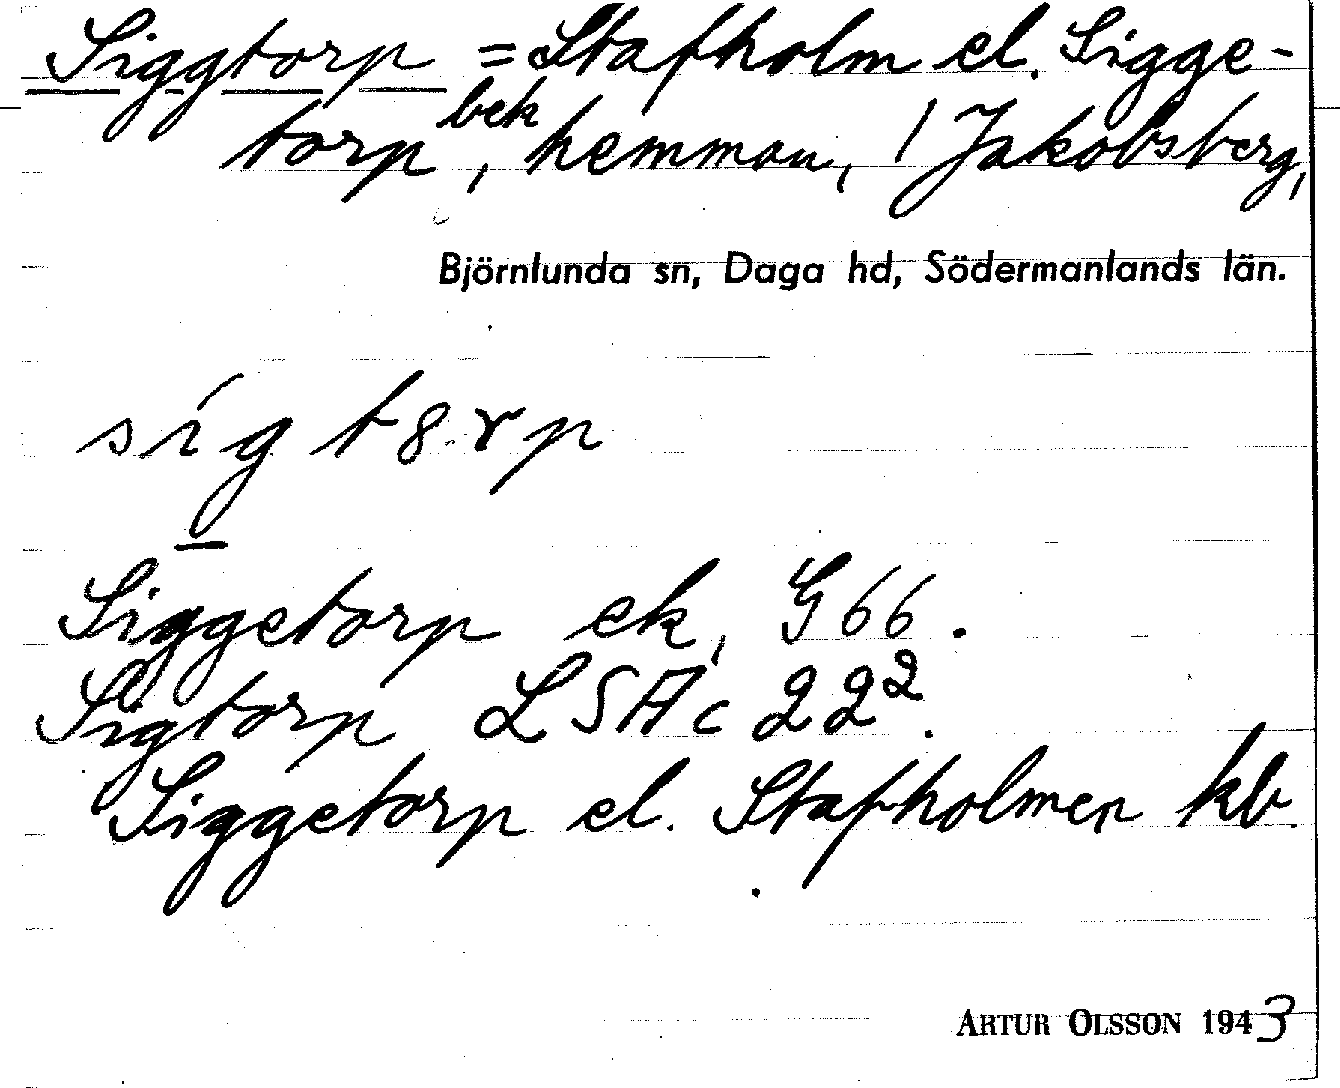 Siggtorp = Stafholm el. Sigge-
torp bek, hemman, / Jakobsberg,
Björnlunda sn, Daga hd, Södermanlands län.
sigt8rp
Siggetorp ek, G 66.
Sigtorp LSA c 22².
Siggetorp el. Stafholmen kb.
ARTUR OLSSON 1943